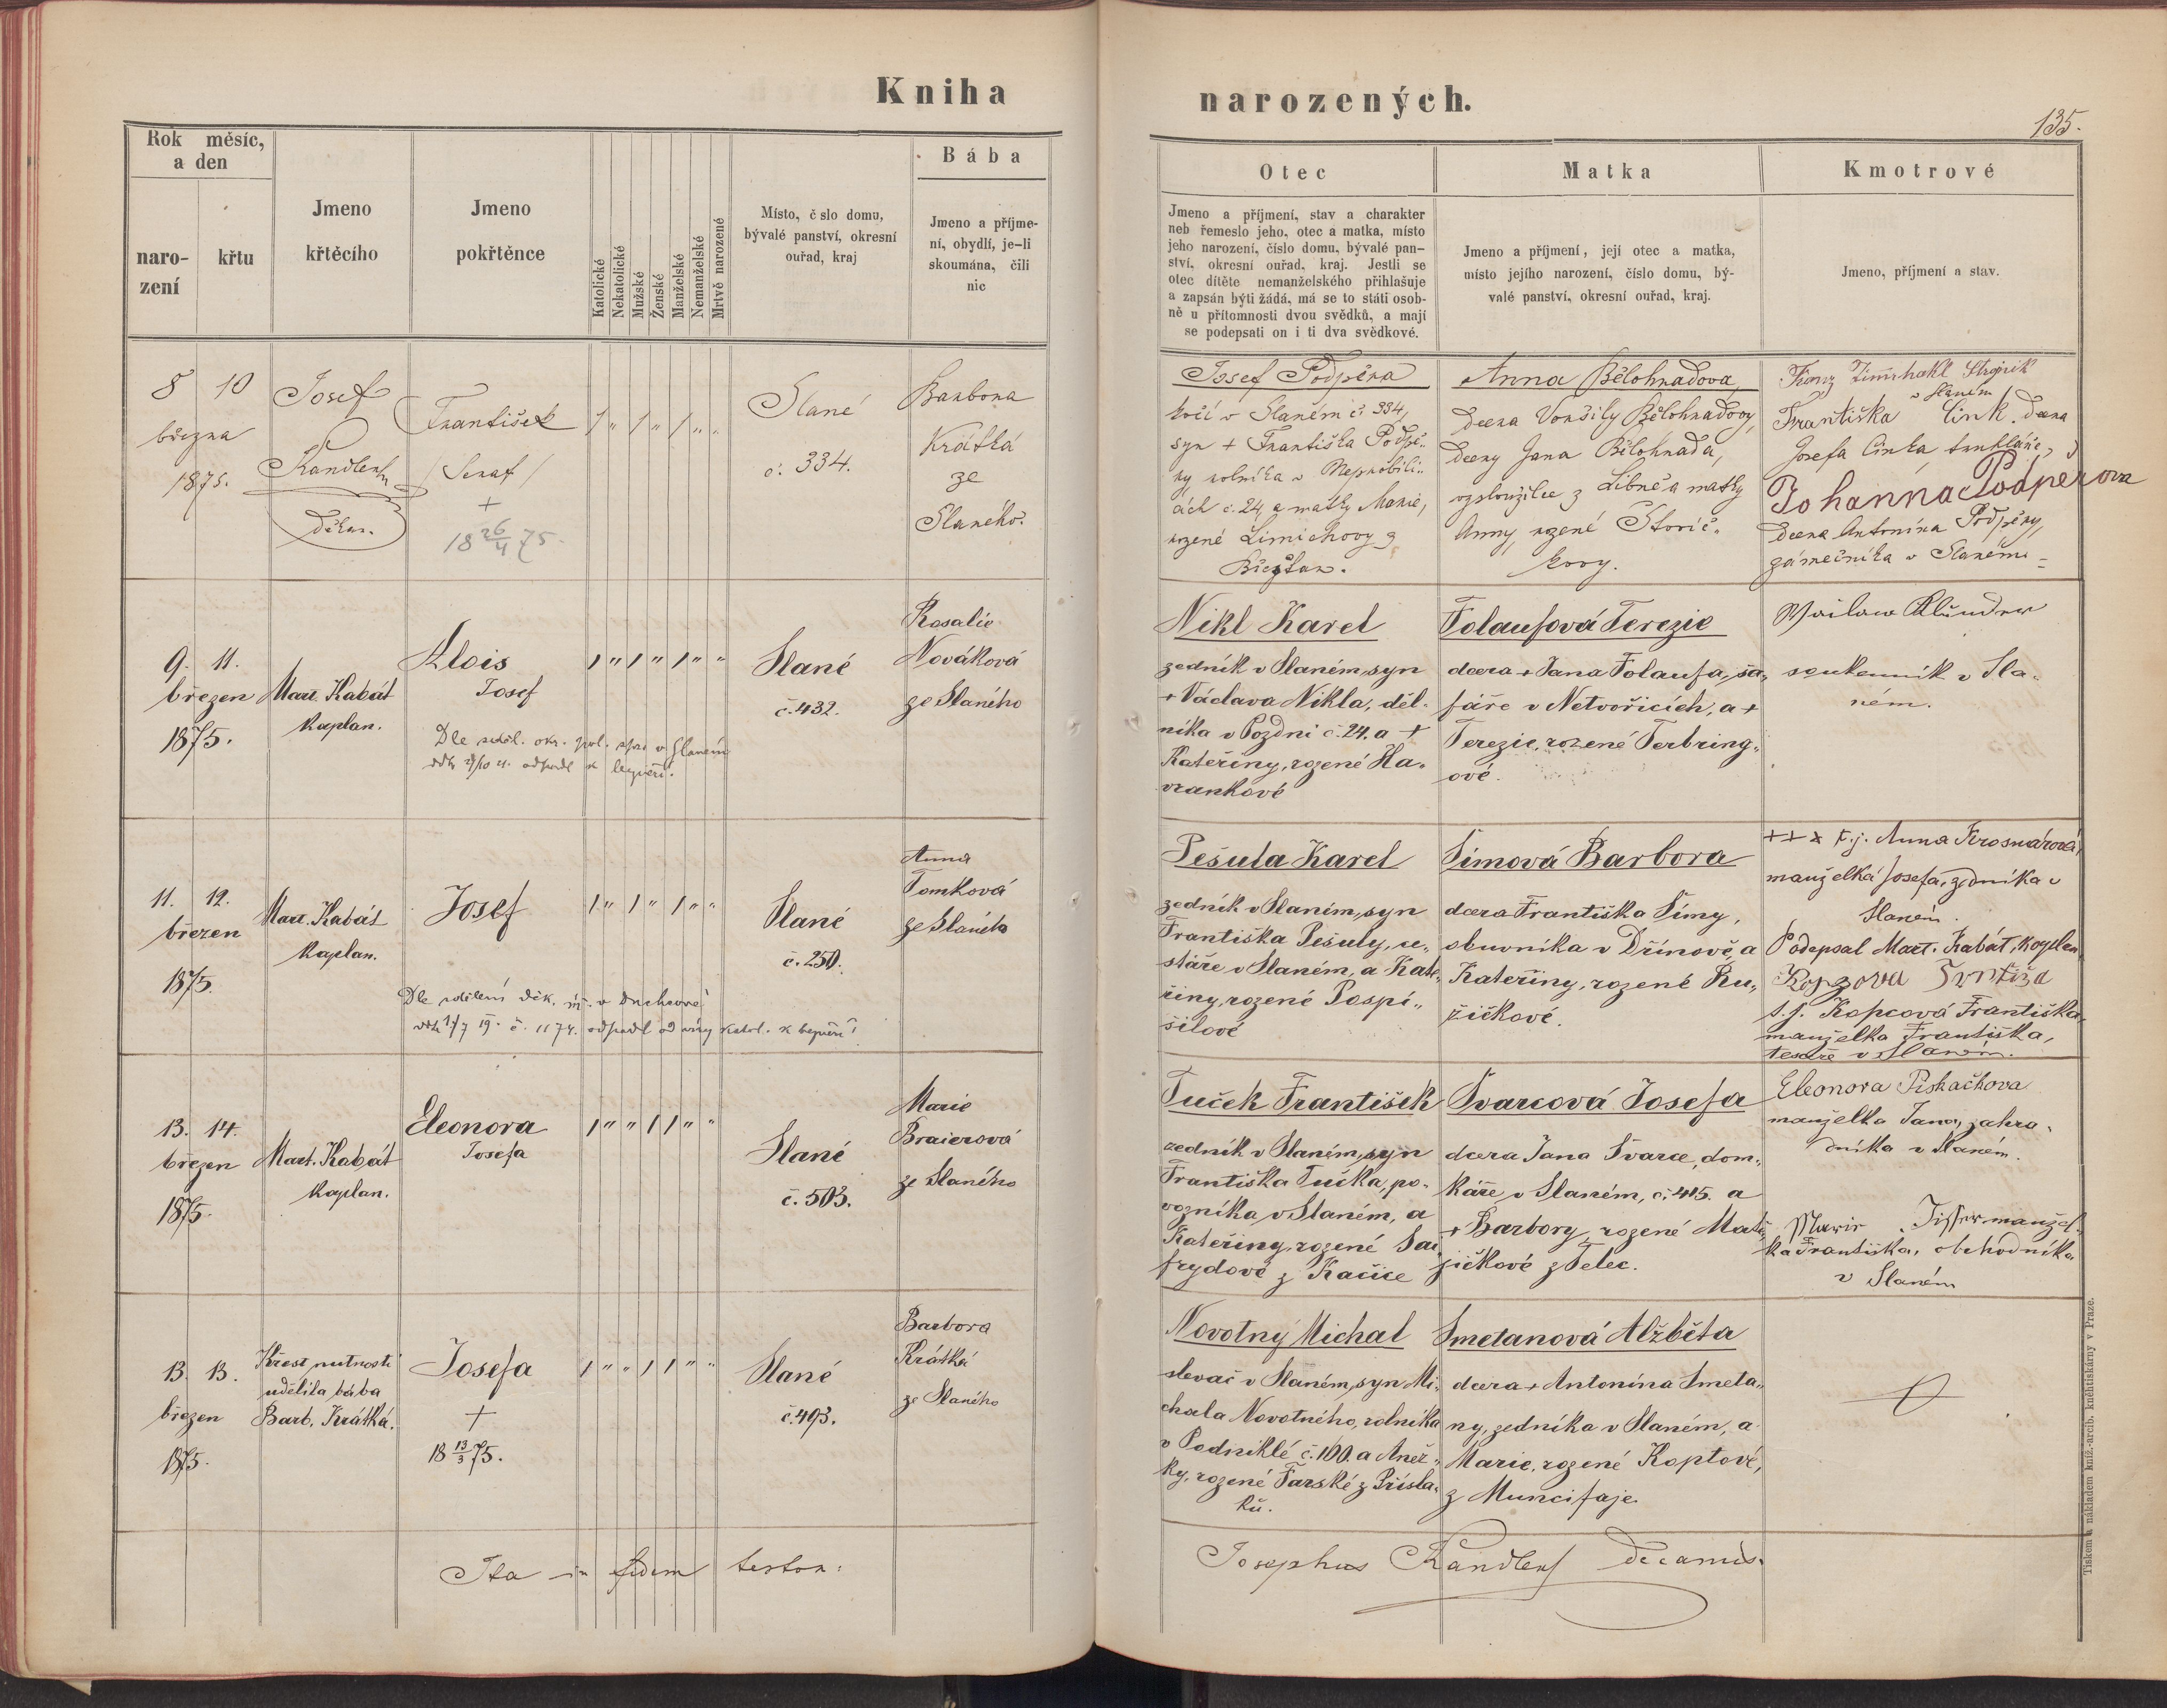 Kniha narozených.
135.
Rok měsíc,
a den
naro-
zení
křtu
Jmeno
křtěcího
Jmeno
pokřtěnce
Katolické
Nekatolické
Mužské
Ženské
Manželské
Nemanželské
Mrtvě narozené
Místo, č slo domu,
bývalé panství, okresní
ouřad, kraj
Bába
Jmeno a příjme-
ní, obydlí, je-li
skoumána, čili
nic
Otec
Jmeno a příjmení, stav a charakter
neb řemeslo jeho, otec a matka, místo
jeho narození, číslo domu, bývalé pan-
ství, okresní ouřad, kraj. Jestli se
otec dítěte nemanželského přihlašuje
a zapsán býti žádá, má se to státi osob-
ně u přítomnosti dvou svědků, a mají
se podepsati on i ti dva svědkové.
Matka
Jmeno a příjmení, její otec a matka,
místo jejího narození, číslo domu, bý-
valé panství, okresní ouřad, kraj.
Kmotrové
Jmeno, příjmení a stav.
8 10
března
1875.
Josef
Kandler
děkan.
František
/Seraf/
+
18 26/4 75.
1 " 1 " 1 " "
Slané
č. 334.
Barbora
Krátká
ze
Slaného.
Josef Podpěra
kočí v Slaném č. 334,
syn + Františka Podpě-
ry rolníka v Neprobili-
cích č. 24, a matky Marie,
rozené
Anna Bělohradova,
dcera Voršily Bělohradovy,
dcery Jana Bělohrada,
vysloužilce z Libně a matky
Anny, rozené
kovy.
v Slaném
Františka Cink. dcera
Josefa Cinka
Johanna Podperova
dcera Antonína Podpěry,
zámečníka v Slaném
9. 11.
březen
1875.
Mart. Kabát
kaplan.
Alois
Josef
Dle sděl. okr. pol. spr. v Slaném
odpadl k bezvěří.
1 " 1 " 1 " "
Slané
č. 432.
Rosalie
Nováková
ze Slaného
Nikl Karel
zedník v Slaném, syn
+ Václava Nikla, děl-
níka v Pozdni č. 24. a +
Kateřiny, rozené Ha-
vrankové
Folaufová Terezie
dcera + Jana Folaufa, ša-
fáře v Netvořicích, a +
Terezie, rozené Ferbring-
ové.
soukenník v Sla-
ném.
11. 12.
březen
1875.
Mart. Kabát
kaplan.
Josef
Dle sdělení děk. úř. v Duchcově
č. 1174. odpadl od víry katol. k bezvěří
1 " 1 " 1 " "
Slané
č. 250.
Anna
Tomková
ze Slaného
Pešuta Karel
zedník v Slaném, syn
Františka Pešuty, ce-
stáře v Slaném, a Kate-
řiny, rozené Pospí-
šilové
Šímová Barbora
dcera Františka Šímy,
obuvníka v Dřínově, a
Kateřiny, rozené Ru-
žičkové.
+++ t. j. Anna Krosnářová,
manželka Josefa, zedníka v
Slaném.
Podepsal Mart. Kabát, kaplan
t. j. Kopcová Františka
manželka Františka,
tesaře v Slaném.
13. 14.
březen
1875.
Mart. Kabát
kaplan.
Eleonora
Josefa
1 " " 1 1 " "
Slané
č. 503.
Marie
Braierová
ze Slaného
Tuček František
zedník v Slaném, syn
Františka Tučka, po-
vozníka v Slaném, a
Kateřiny, rozené Sai-
frydové z Kačice
Švarcová Josefa
dcera Jana Švarce, dom-
káře v Slaném, č. 415. a
+ Barbory, rozené Matě-
jičkové z Telec.
Eleonora Piskačkova
manželka Jana, zahra-
dníka v Slaném.
manžel-
ka Františka, obchodníka
v Slaném
13. 13.
březen
1875.
Křest nutnosti
udělila bába
Barb. Krátká.
Josefa
+
18 13/3 75.
1 " " 1 1 " "
Slané
č. 493.
Barbora
Krátká
ze Slaného
Novotný Michal
slevač v Slaném, syn Mi-
chala Novotného, rolníka
v Podniklé č. 100. a Anež-
ky, rozené Farské z Přísla-
ků.
Smetanová Alžběta
dcera + Antonína Smeta-
ny, zedníka v Slaném, a
Marie, rozené Koptové,
z Muncifaje.
Ita in fidem testor:
Josephus Kandler decanus.
Tiskem a nákladem kníž.-arcib. knihtiskárny v Praze.